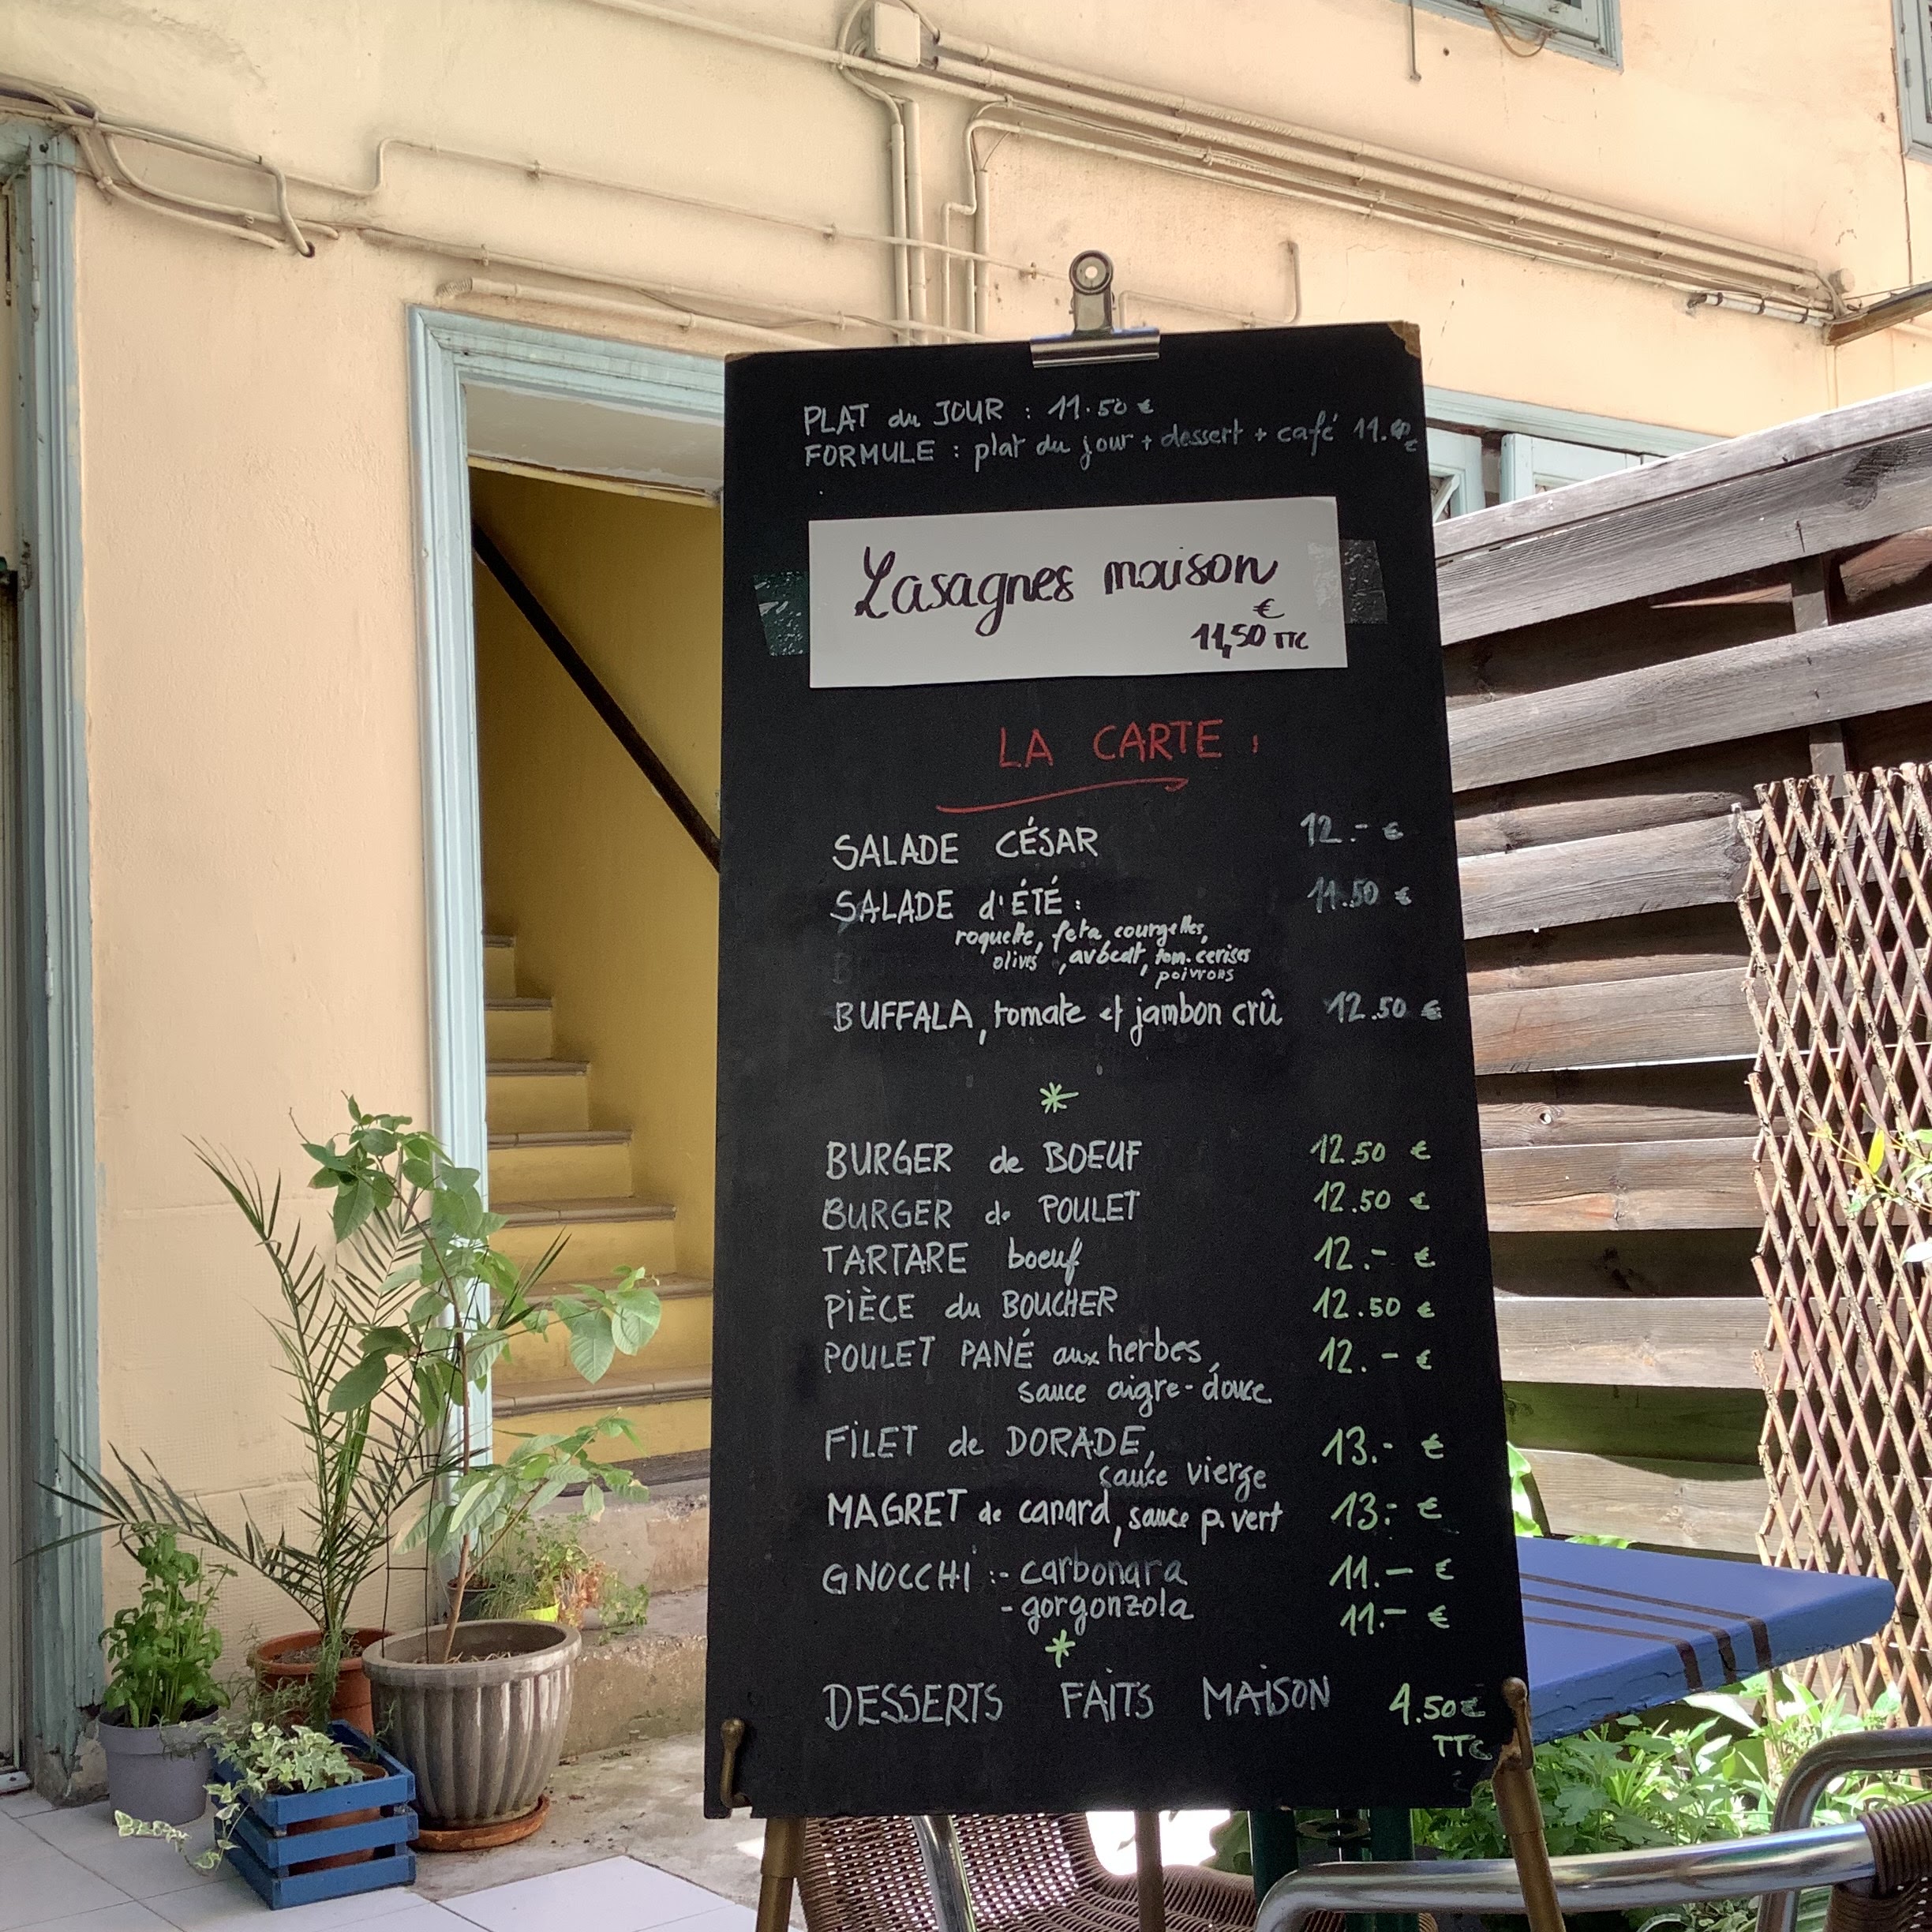 PLAT du JOUR : 11.50 €
FORMULE : plat du jour + dessert + café 11. €
Lasagnes maison
€
11,50 TTC
LA CARTE :
SALADE CÉSAR 12.- €
SALADE d'ÉTÉ : 11.50 €
roquette, feta courgettes,
olives, tom. cerises
poivrons
BUFFALA, tomate et jambon crû 12.50 €
*
BURGER de BOEUF 12.50 €
BURGER de POULET 12.50 €
TARTARE boeuf 12.- €
PIÈCE du BOUCHER 12.50 €
POULET PANÉ aux herbes, 12.- €
sauce aigre-douce
FILET de DORADE, 13.- €
sauce vierge
MAGRET de canard, sauce p. vert 13.- €
GNOCCHI :- carbonara 11.- €
- gorgonzola 11.- €
*
DESSERTS FAITS MAISON 4.50€
TTC